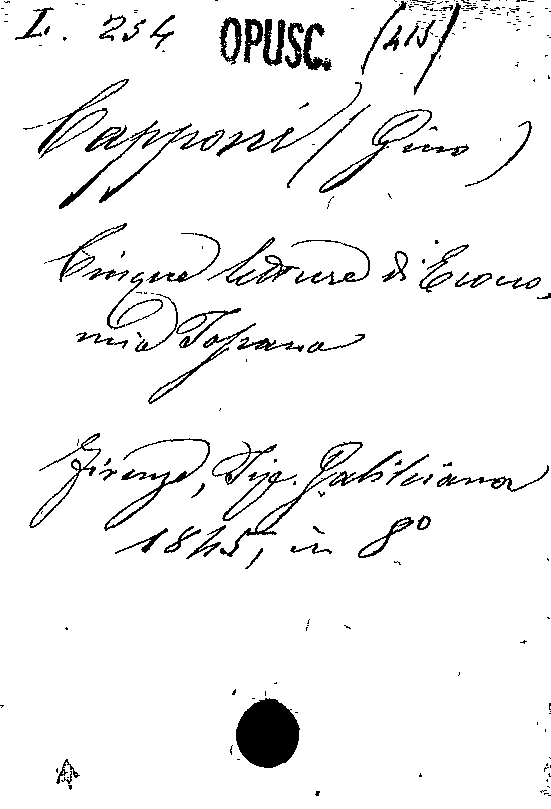 I. 254 OPUSC. (215)
Capponi (Gino)
Cinque letture di Econo-
mia Toscana
Firenze, Tip. Galileiana
1845, in 8º